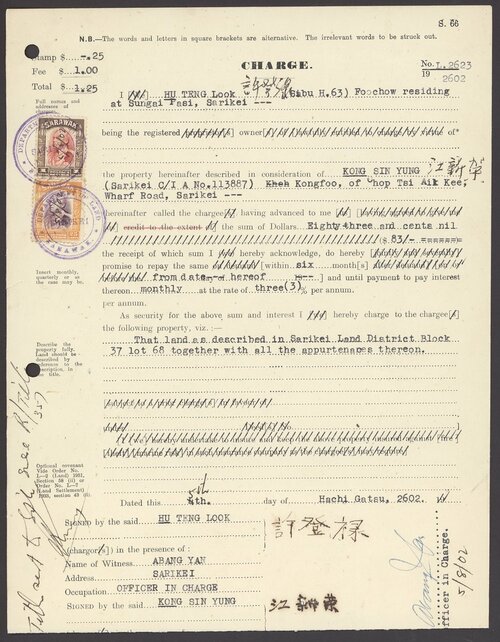 S. 66
N.B.—The words and letters in square brackets are alternative. The irrelevant words to be struck out.
Stamp $ -.25
Fee $ 1.00
Total $ 1.25
CHARGE.
No. L.2623
19 2602
Full names and addresses of
I HU TENG LOOK (Sibu H.63) Foochow residing
at Sungai Pasi, Sarikei ---
being the registered owner of*
SARAWAK
the property hereinafter described in consideration of KONG SIN YUNG 江新榮
(Sarikei C/I A No.113887) Kheh Kongfoo, of Chop Tai Aik Kee,
Wharf Road, Sarikei ---
hereinafter called the chargee having advanced to me
credit to the extent the sum of Dollars Eighty-three and cents nil
($ 83/- =======
the receipt of which sum I hereby acknowledge, do hereby
promise to repay the same [within six month[s]
from date hereof ---] and until payment to pay interest
thereon monthly at the rate of three(3)% per annum.
per annum.
Insert monthly, quarterly or as the case may be.
As security for the above sum and interest I hereby charge to the chargee
the following property, viz.:—
Describe the property fully. Land should be described by reference to the description in the title.
That land as described in Sarikei Land District Block
37 lot 68 together with all the appurtenaces thereon.
Optional covenant Vide Order No. L-2 (Land) 1931, Section 58 (ii) or Order No. L-7 (Land Settlement) 1933, section 43 (ii)
Dated this 5th 4th. day of Hachi Gatsu, 2602.
SIGNED by the said HU TENG LOOK 許登祿
(chargor) in the presence of :
Name of Witness ABANG YAN
Address SARIKEI
Occupation OFFICER IN CHARGE
SIGNED by the said KONG SIN YUNG 江新榮
Officer in Charge.
5/8/02